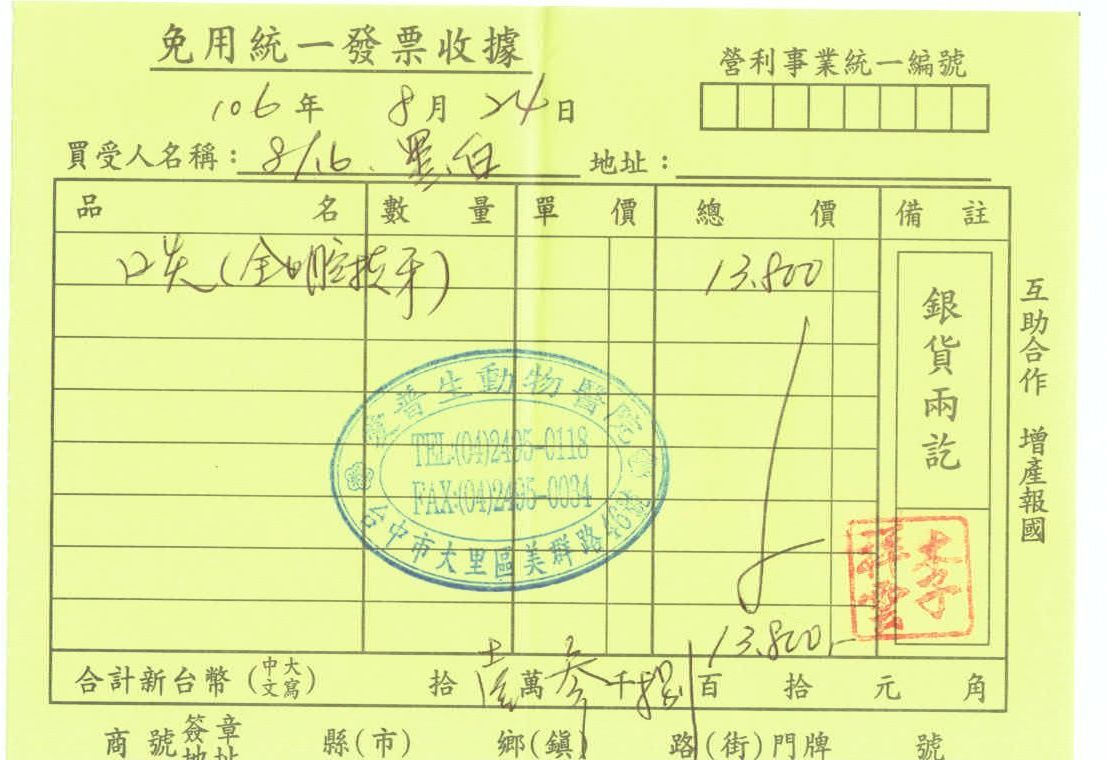 免用統一發票收據
營利事業統一編號
106年 8月 24日
買受人名稱：8/16. 墨白 地址：
品名 數量 單價 總價 備註
口炎(全口腔拔牙) 13,800
銀貨兩訖
互助合作 增產報國
普生動物醫院
TEL:(04)2495-0118
FAX:(04)2495-0034
台中市大里區美群路46號
李祥雲
13,800.-
合計新台幣(中文大寫) 拾壹萬參千捌百拾元角
商號簽章地址 縣(市) 鄉(鎮) 路(街)門牌 號